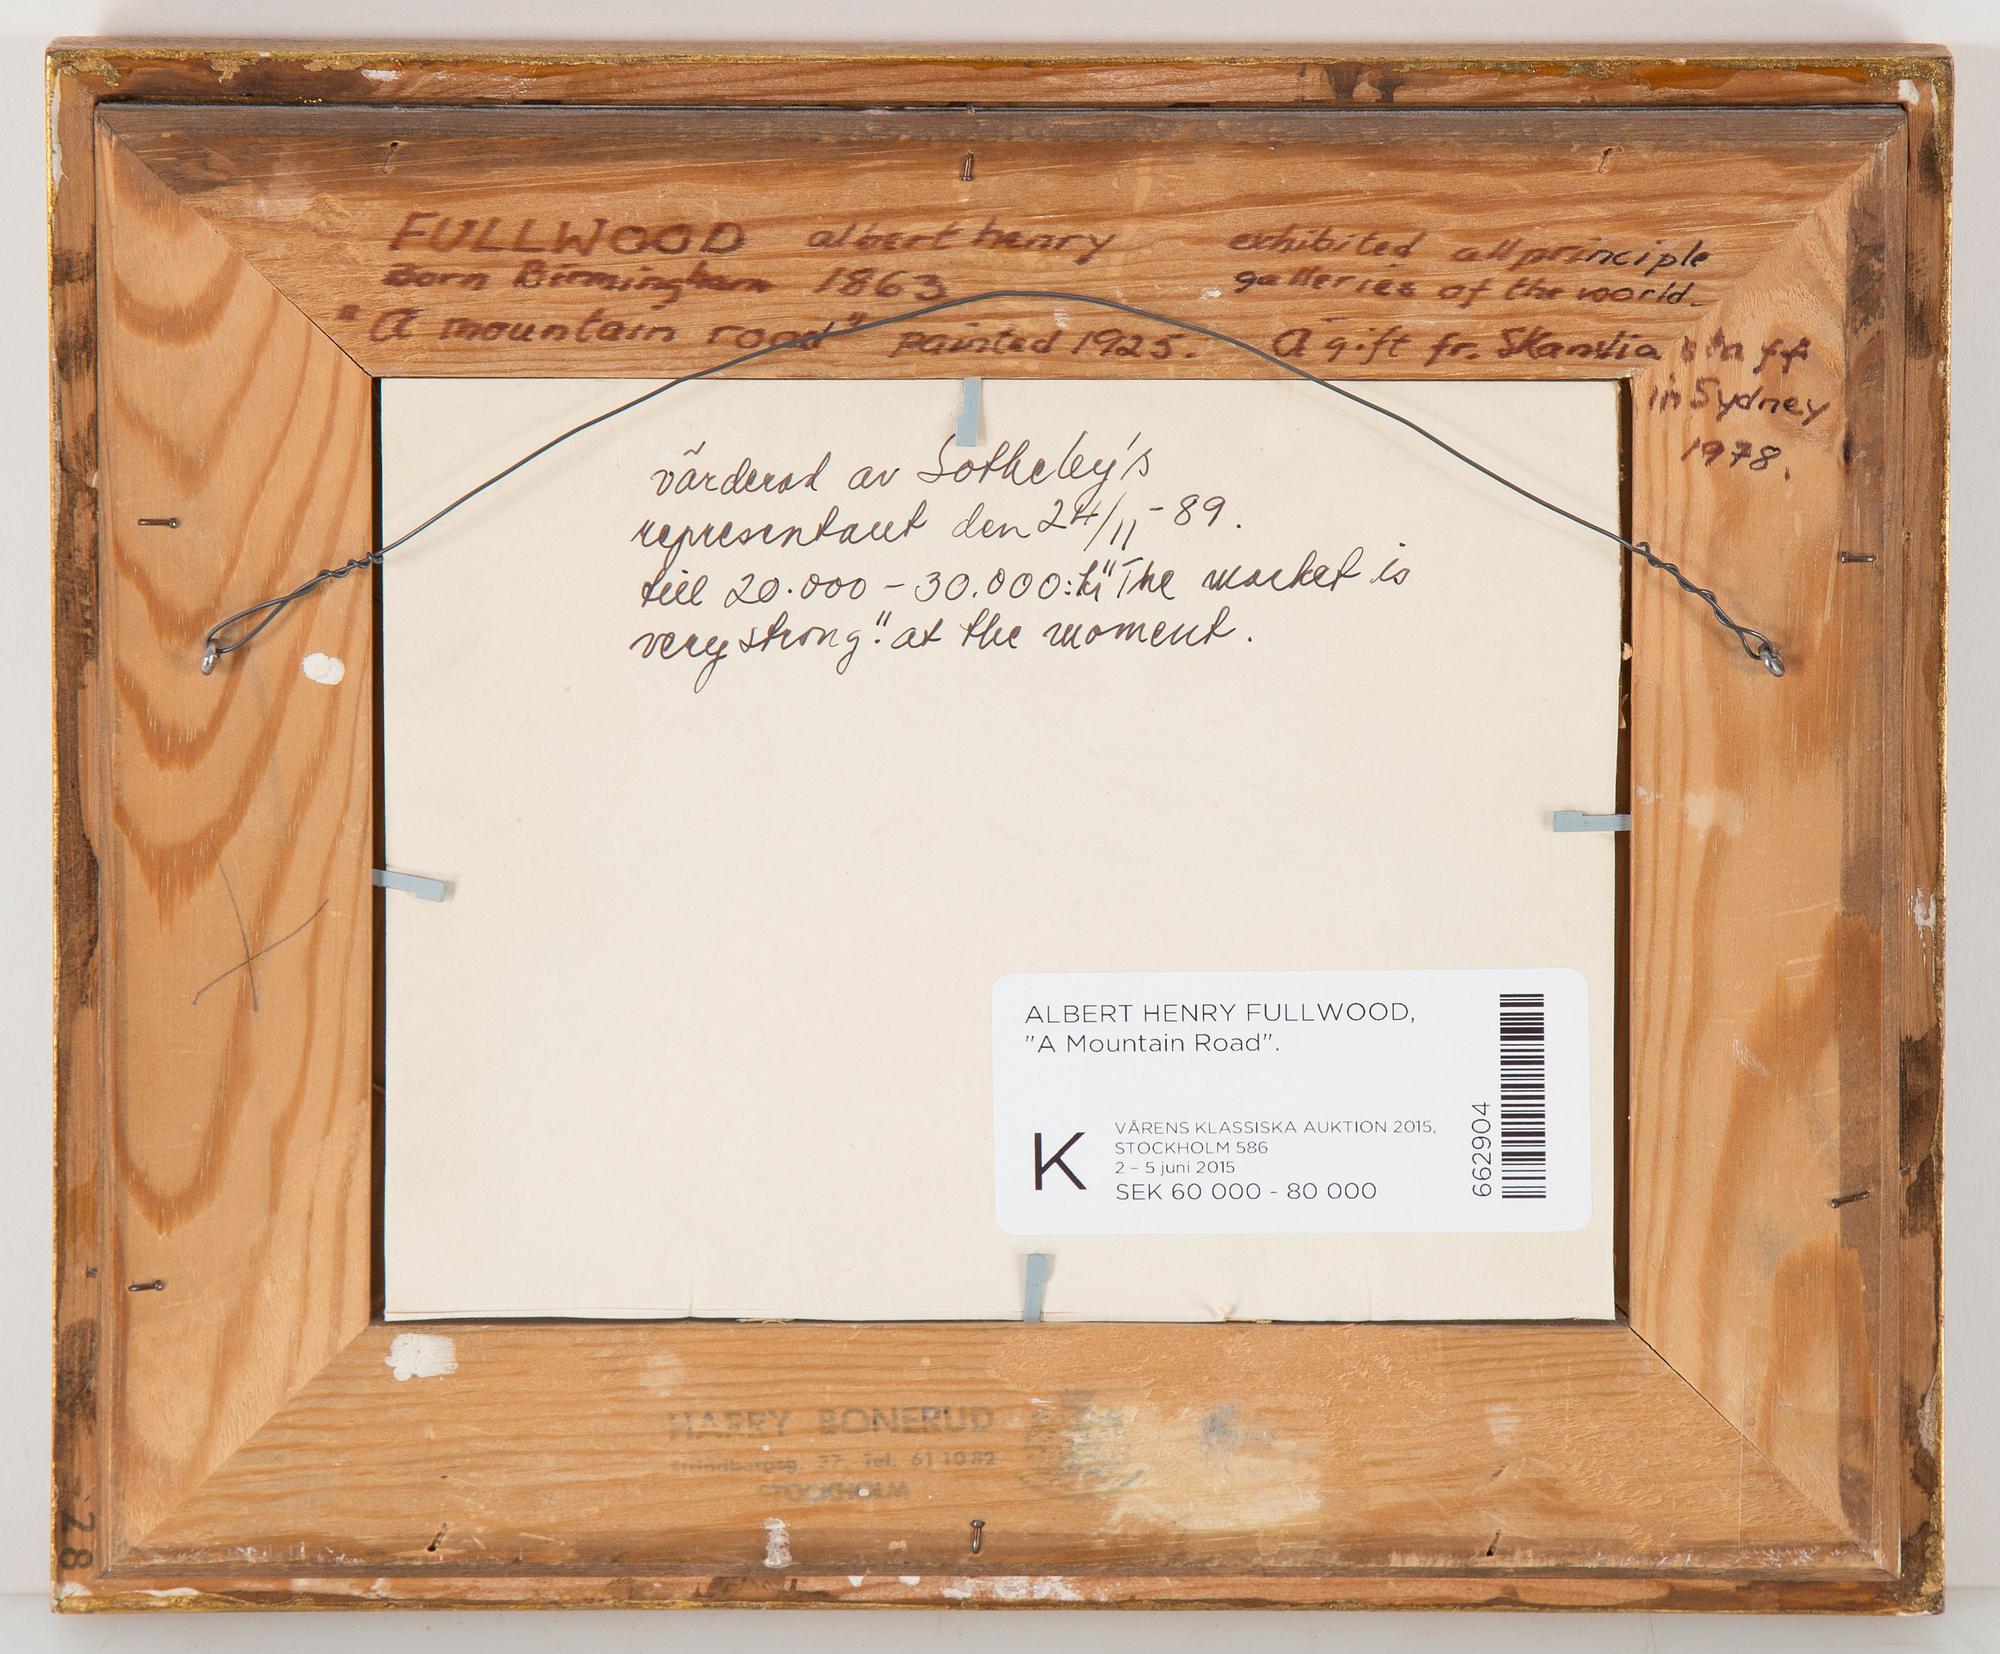 FULLWOOD albert henry
Born Birmingham 1863
"A mountain road" painted 1925.
exhibited all principle
galleries of the world.
A gift fr. Skandia staff
in Sydney
1978.
värderad av Sotheby's
representant den 24/11-89.
till 20.000 – 30.000:kr "The market is
very strong" at the moment.
ALBERT HENRY FULLWOOD,
"A Mountain Road".
K
VÅRENS KLASSISKA AUKTION 2015,
STOCKHOLM 586
2 – 5 juni 2015
SEK 60 000 - 80 000
662904
HARRY BONERUD
37. Tel. 61 10 82
STOCKHOLM
28